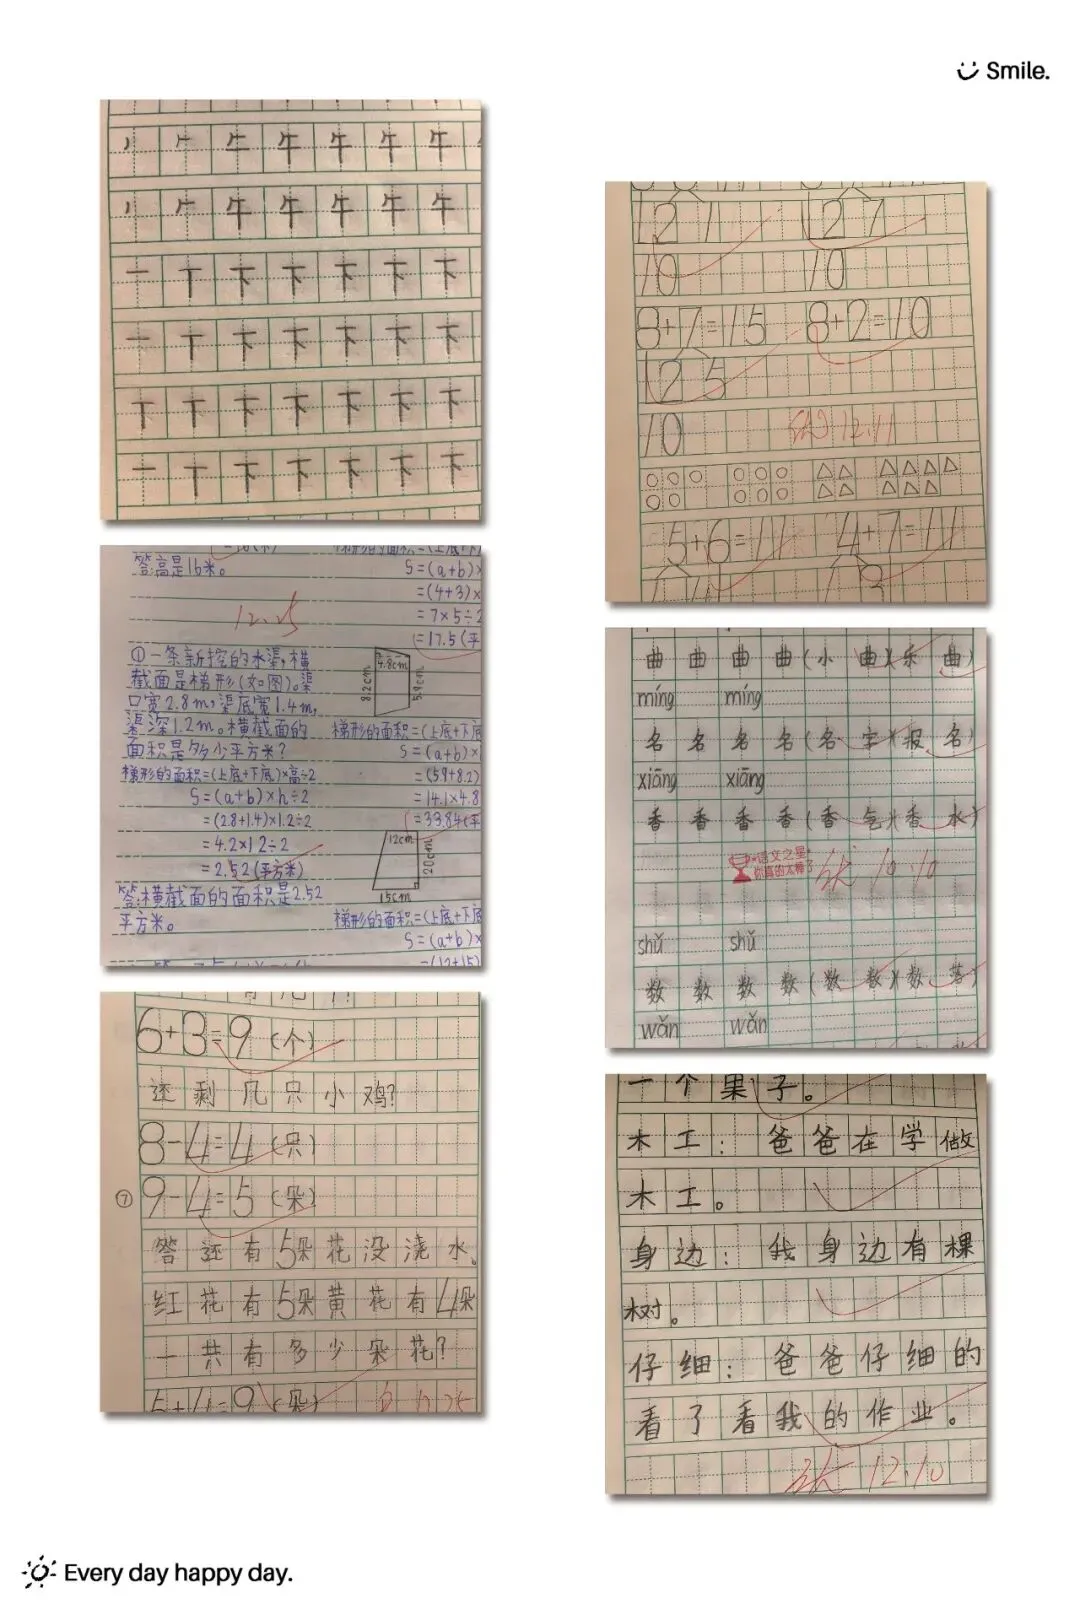 Smile.
丿 𠂉 牛 牛 牛 牛 牛
丿 𠂉 牛 牛 牛 牛 牛
一 丅 下 下 下 下 下
一 丅 下 下 下 下 下
丅 下 下 下 下 下 下
一 丅 下 下 下 下 下
答:高是16米。
12.25
①一条新挖的水渠,横
截面是梯形(如图)。渠
口宽2.8m,渠底宽1.4m,
渠深1.2m。横截面的
面积是多少平方米?
梯形的面积=(上底+下底)×高÷2
S=(a+b)×h÷2
=(2.8+1.4)×1.2÷2
=4.2×1.2÷2
=2.52(平方米)
答:横截面的面积是2.52
平方米。
S=(a+b)×
=(4+3)×
=7×5÷2
=17.5(平
4.8cm
8.2cm
5.9cm
梯形的面积=(上底+下底
S=(a+b)×
=(5.9+8.2)
=14.1×4.8
=33.84(平
12cm
20cm
15cm
梯形的面积=(上底+下底
S=(a+b)×
=(12+15)
6+3=9(个)
还剩几只小鸡?
8-4=4(只)
⑦ 9-4=5(朵)
答还有5朵花没浇水。
红花有5朵黄花有4朵
一共有多少朵花?
5+4=9(朵)
1 2 7 1 2 7
10 10
8+7=15 8+2=10
2 5
10
12.11
5+6=11 4+7=11
曲 曲 曲 曲(小曲)(乐曲)
míng míng
名 名 名 名(名字)(报名)
xiāng xiāng
香 香 香 香(香气)(香水)
语文之星
你真的太棒了
10.10
shǔ shǔ
数 数 数 数(数数)(数落)
wǎn wǎn
一个果子。
木工:爸爸在学做
木工。
身边:我身边有棵
树。
仔细:爸爸仔细的
看了看我的作业。
12.10
Every day happy day.